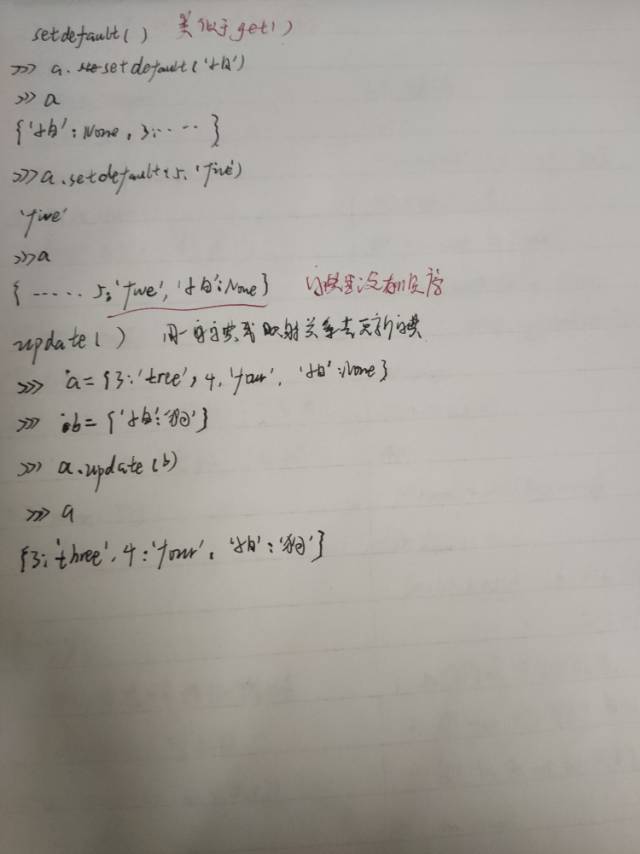 setdefault() 类似于get()
>>> a.setdefault('小白')
>>> a
{'小白':None, 3:····}
>>> a.setdefault(5,'five')
'five'
>>>a
{ ······ 5:'five','小白':None} 字典里没有顺序
update() 用一个字典或映射关系去更新字典
>>> a={3:'tree',4,'four','小白':None}
>>> b={'小白':'狗'}
>>> a.update(b)
>>> a
{3:'three',4:'four','小白':'狗'}